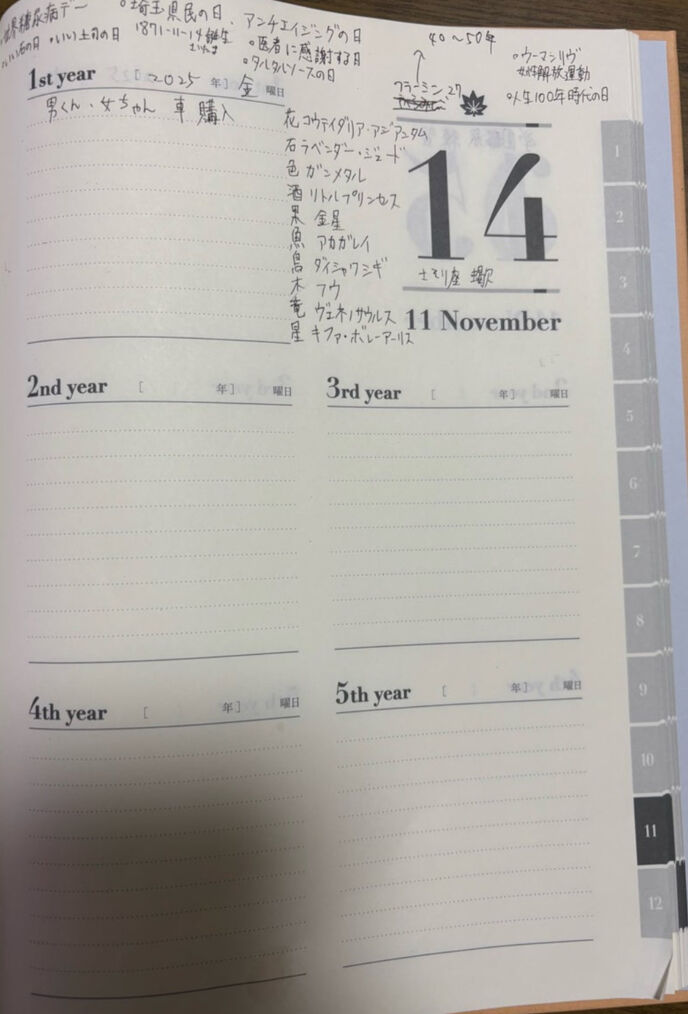 世界糖尿病デー
○埼玉県民の日
アンチエイジングの日
1871-11-14 誕生
さいたま
・いい石の日 ・いい上司の日
○医者に感謝する日
○タルタルソースの日
40〜50年
○ウーマンリヴ
女性解放運動
○人生100年時代の日
フラーミン.27
1st year [2025 年] 金 曜日
男くん・女ちゃん 車 購入
花 コウテイダリア・アジアンタム
石 ラベンダー・ジェード
色 ガンメタル
酒 リトルプリンセス
果 金星
魚 アカガレイ
鳥 ダイシャクシギ
木 フウ
竜 ヴェネノサウルス
星 キファ・ボレーアーリス
14
さそり座 蠍
11 November
2nd year [ 年] 曜日
3rd year [ 年] 曜日
4th year [ 年] 曜日
5th year [ 年] 曜日
1
2
3
4
5
6
7
8
9
10
11
12